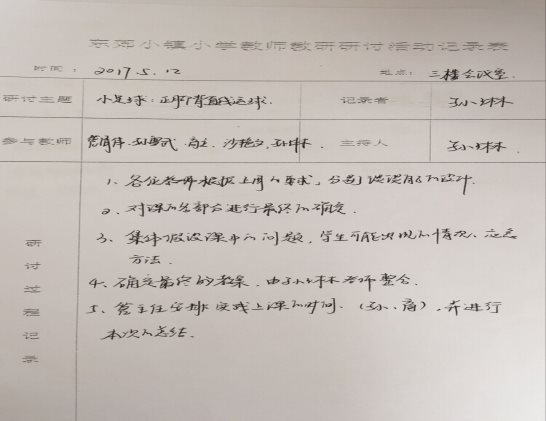 东郊小镇小学教师教研研讨活动记录表
时间：2017.5.12 地点：三楼会议室
研讨主题 小足球：正脚背直线运球 记录者 孙林林
参与教师 孙林林 主持人 孙林林
研讨过程记录
1、各位教师根据上周的要求，分别谈谈自己的设计.
2、对课的各部分进行最终的确定.
3、集体假设课中的问题，学生可能出现的情况、应急
方法.
4、确定最终的教案，由孙林林老师整合.
5、管主任安排实践上课的时间.（孙、商），并进行
本次的总结.